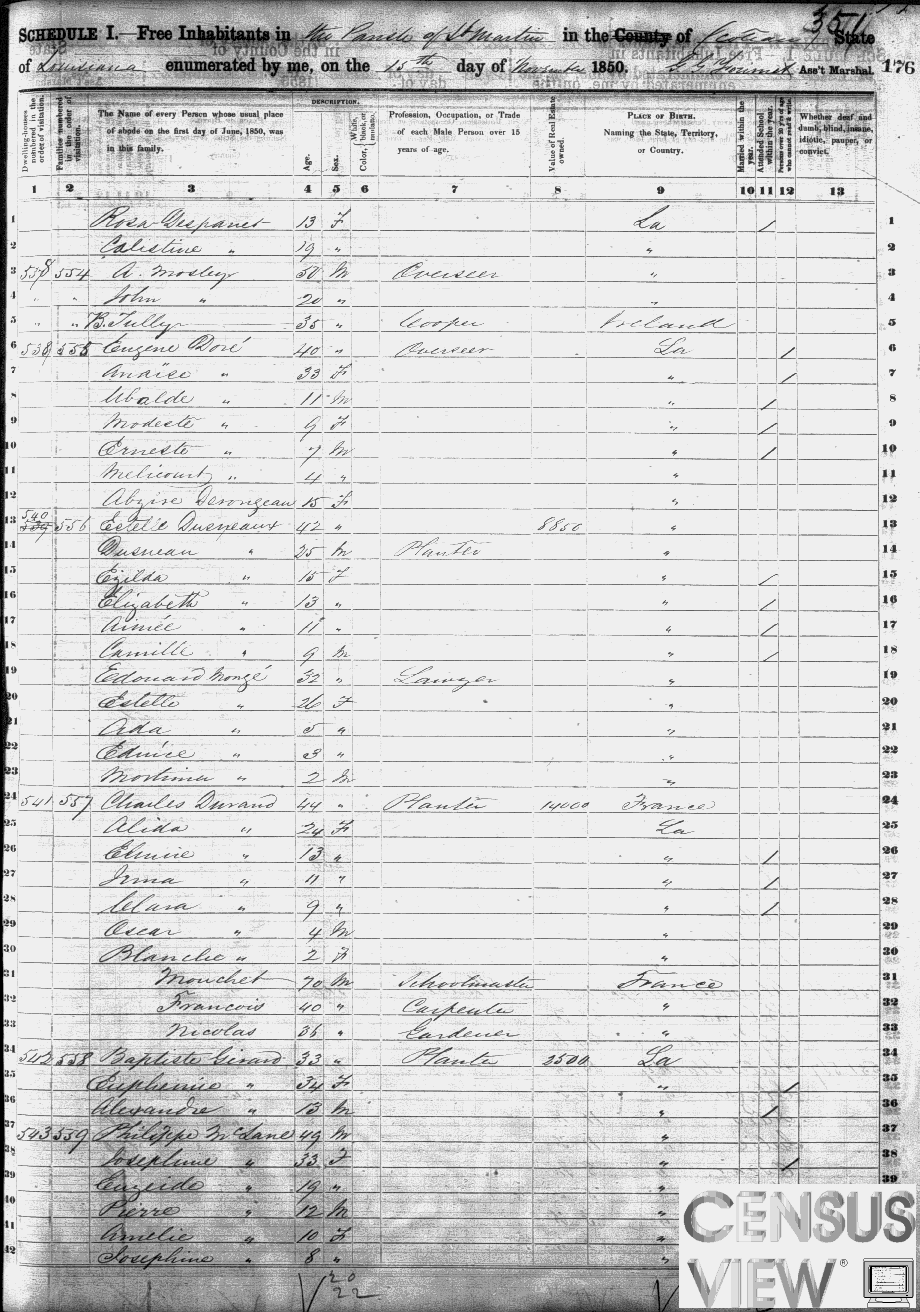 351
SCHEDULE I.—Free Inhabitants in the Parish of St Martin in the County of State
of Louisiana enumerated by me, on the 15th day of November 1850. Ass't Marshal. 176
Dwelling-houses numbered in the order of visitation.
Families numbered in the order of visitation.
The Name of every Person whose usual place of abode on the first day of June, 1850, was in this family.
DESCRIPTION.
Age.
Sex.
Color, White, black, or mulatto.
Profession, Occupation, or Trade of each Male Person over 15 years of age.
Value of Real Estate owned.
PLACE OF BIRTH. Naming the State, Territory, or Country.
Married within the year.
Attended School within the year.
Persons over 20 y'rs of age who cannot read & write.
Whether deaf and dumb, blind, insane, idiotic, pauper, or convict.
1 2 3 4 5 6 7 8 9 10 11 12 13
1 Rosa Despanet 13 F La / 1
2 Calestine " 19 " " 2
3 538 554 A. Mosley 50 M Overseer " 3
4 " " John " 20 " " 4
5 " " B. Tully 35 " Cooper Ireland 5
6 538 555 Eugene Doré 40 " Overseer La / 6
7 Anaïse " 33 F " / 7
8 Ubalde " 11 M " / 8
9 Modeste " 9 F " / 9
10 Erneste " 7 M " / 10
11 Melicourt " 4 " " 11
12 Abzire Derongeau 15 F " 12
13 540 539 556 Estelle Dusneaux 42 " 8850 " 13
14 Dusneau " 25 M Planter " 14
15 Ezilda " 15 F " / 15
16 Elizabeth " 13 " " / 16
17 Aimée " 11 " " / 17
18 Camille " 9 M " / 18
19 Edouard Mongé 32 " Lawyer " 19
20 Estelle " 26 F " 20
21 Ada " 5 " " 21
22 Edmée " 3 " " 22
23 Mortimer " 2 M " 23
24 541 557 Charles Durand 44 " Planter 14000 France 24
25 Alida " 24 F La 25
26 Elmire " 13 " " / 26
27 Irma " 11 " " / 27
28 Clara " 9 " " / 28
29 Oscar " 4 M " 29
30 Blanche " 2 F " 30
31 Mouchet 70 M Schoolmaster France 31
32 Francois 40 " Carpenter " 32
33 Nicolas 36 " Gardener " 33
34 542 558 Baptiste Girard 33 " Planter 2500 La 34
35 Euphemie " 34 F " / 35
36 Alexandre " 13 M " / 36
37 543 559 Philippe McLane 49 M " 37
38 Josephine " 33 F " / 38
39 Euzeide " 19 " " 39
40 Pierre " 12 M "
41 Amelie " 10 F "
42 Josephine " 8 " "
20
22
CENSUS
VIEW®